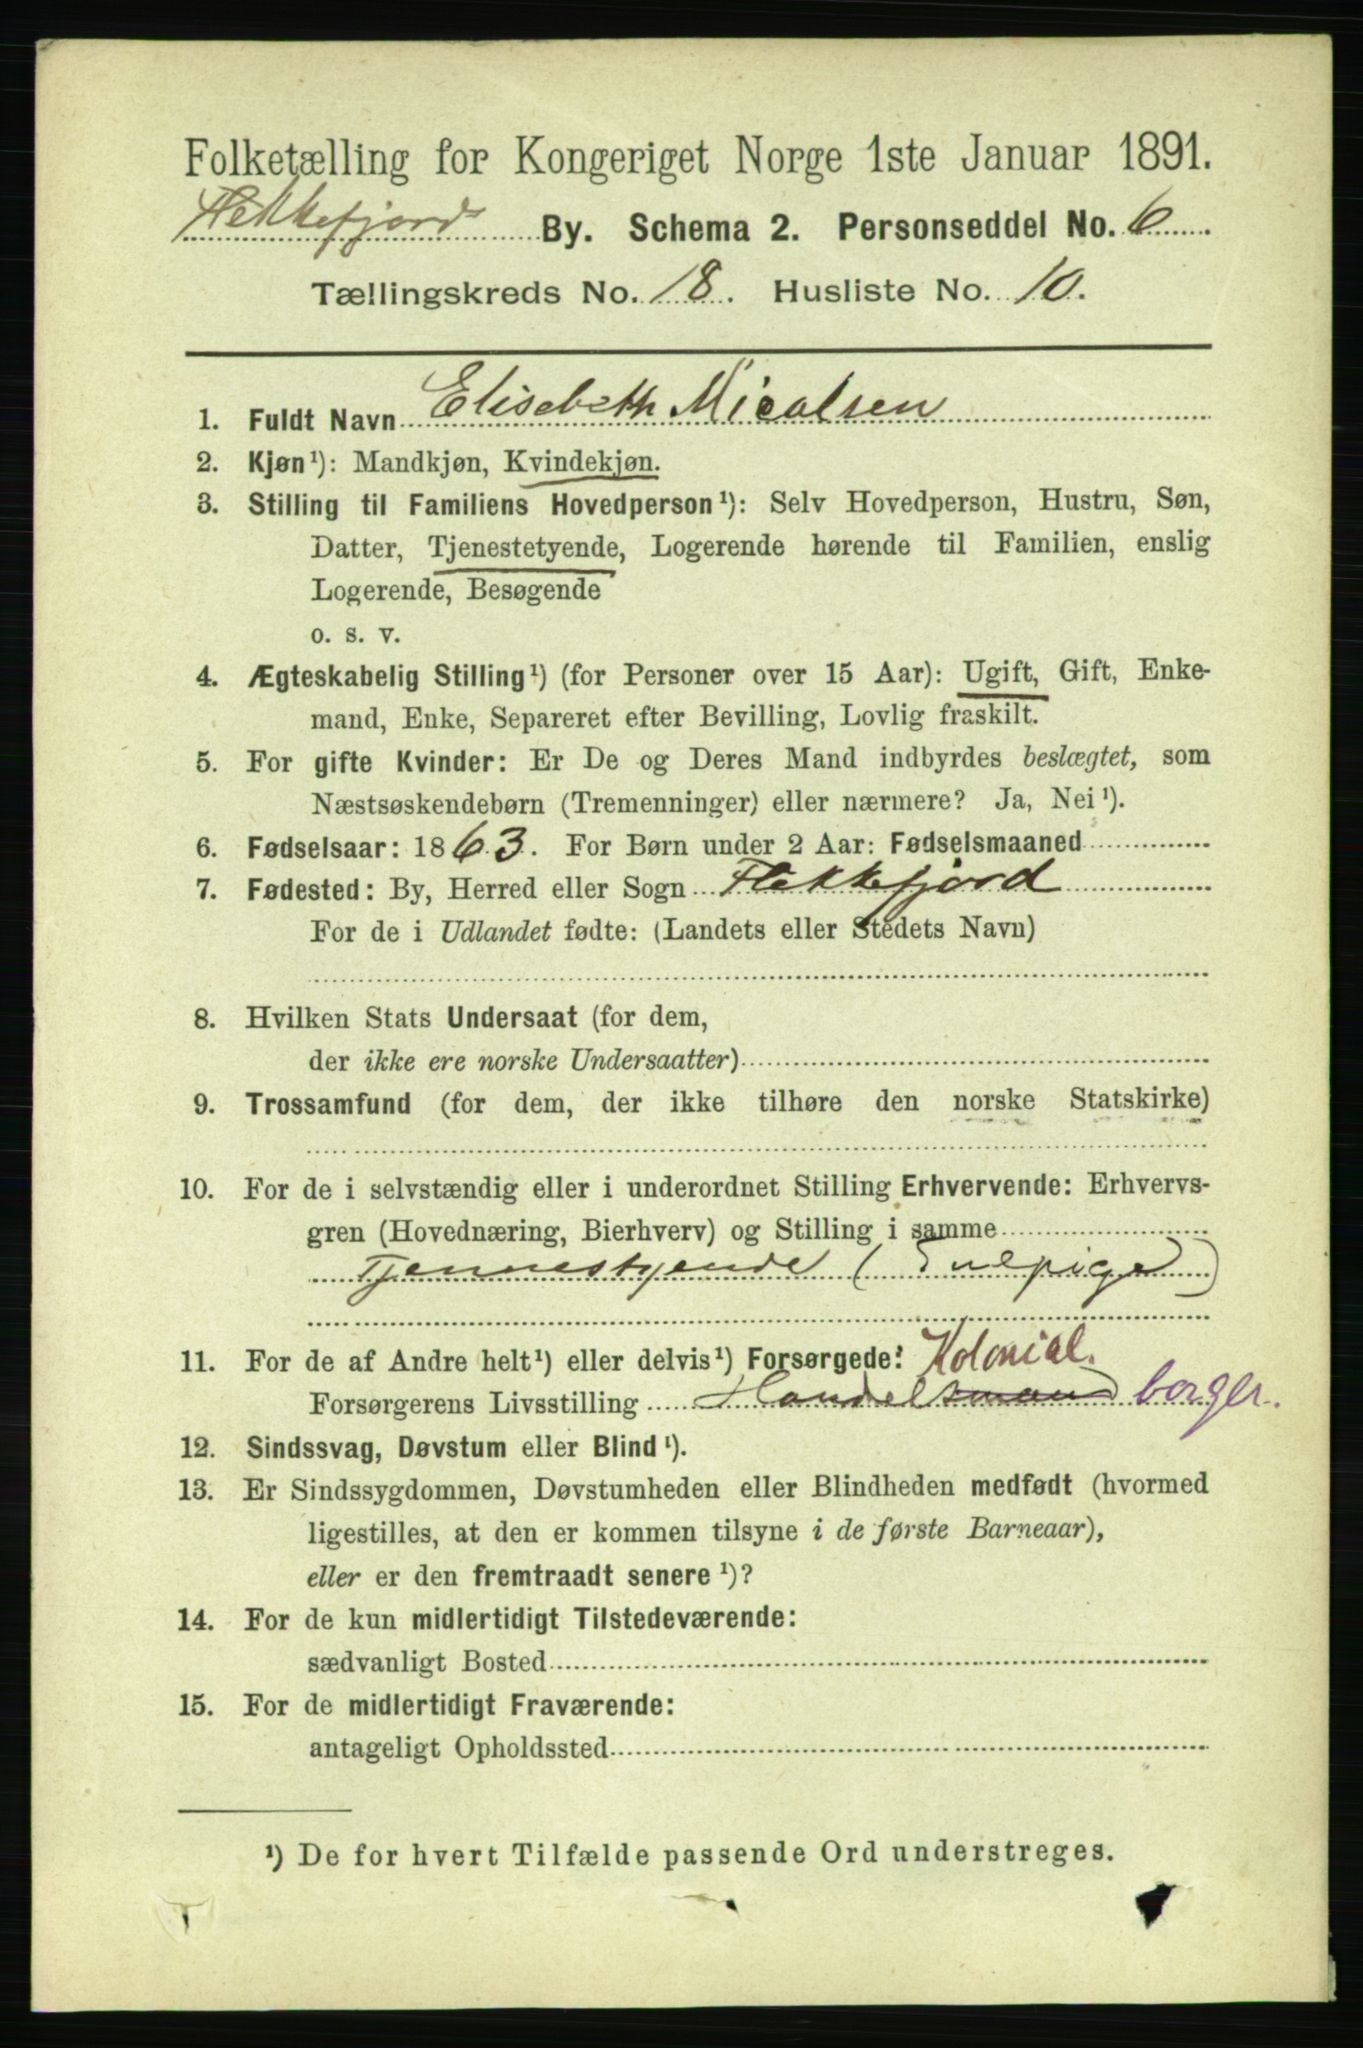 Folketælling for Kongeriget Norge 1ste Januar 1891.
Flekkefjord By. Schema 2. Personseddel No. 6
Tællingskreds No. 18. Husliste No. 10.
1. Fuldt Navn Elisebeth Micalsen
2. Kjøn¹): Mandkjøn, Kvindekjøn.
3. Stilling til Familiens Hovedperson¹): Selv Hovedperson, Hustru, Søn,
Datter, Tjenestetyende, Logerende hørende til Familien, enslig
Logerende, Besøgende
o. s. v.
4. Ægteskabelig Stilling¹) (for Personer over 15 Aar): Ugift, Gift, Enke-
mand, Enke, Separeret efter Bevilling, Lovlig fraskilt.
5. For gifte Kvinder: Er De og Deres Mand indbyrdes beslægtet, som
Næstsøskendebørn (Tremenninger) eller nærmere? Ja, Nei¹).
6. Fødselsaar: 1863. For Børn under 2 Aar: Fødselsmaaned
7. Fødested: By, Herred eller Sogn Flekkefjord
For de i Udlandet fødte: (Landets eller Stedets Navn)
8. Hvilken Stats Undersaat (for dem,
der ikke ere norske Undersaatter)
9. Trossamfund (for dem, der ikke tilhøre den norske Statskirke)
10. For de i selvstændig eller i underordnet Stilling Erhvervende: Erhvervs-
gren (Hovednæring, Bierhverv) og Stilling i samme
Tjennestyende (
11. For de af Andre helt¹) eller delvis¹) Forsørgede: Kolonial.
Forsørgerens Livsstilling Handelsmand borger.
12. Sindssvag, Døvstum eller Blind¹).
13. Er Sindssygdommen, Døvstumheden eller Blindheden medfødt (hvormed
ligestilles, at den er kommen tilsyne i de første Barneaar),
eller er den fremtraadt senere¹)?
14. For de kun midlertidigt Tilstedeværende:
sædvanligt Bosted
15. For de midlertidigt Fraværende:
antageligt Opholdssted
¹) De for hvert Tilfælde passende Ord understreges.